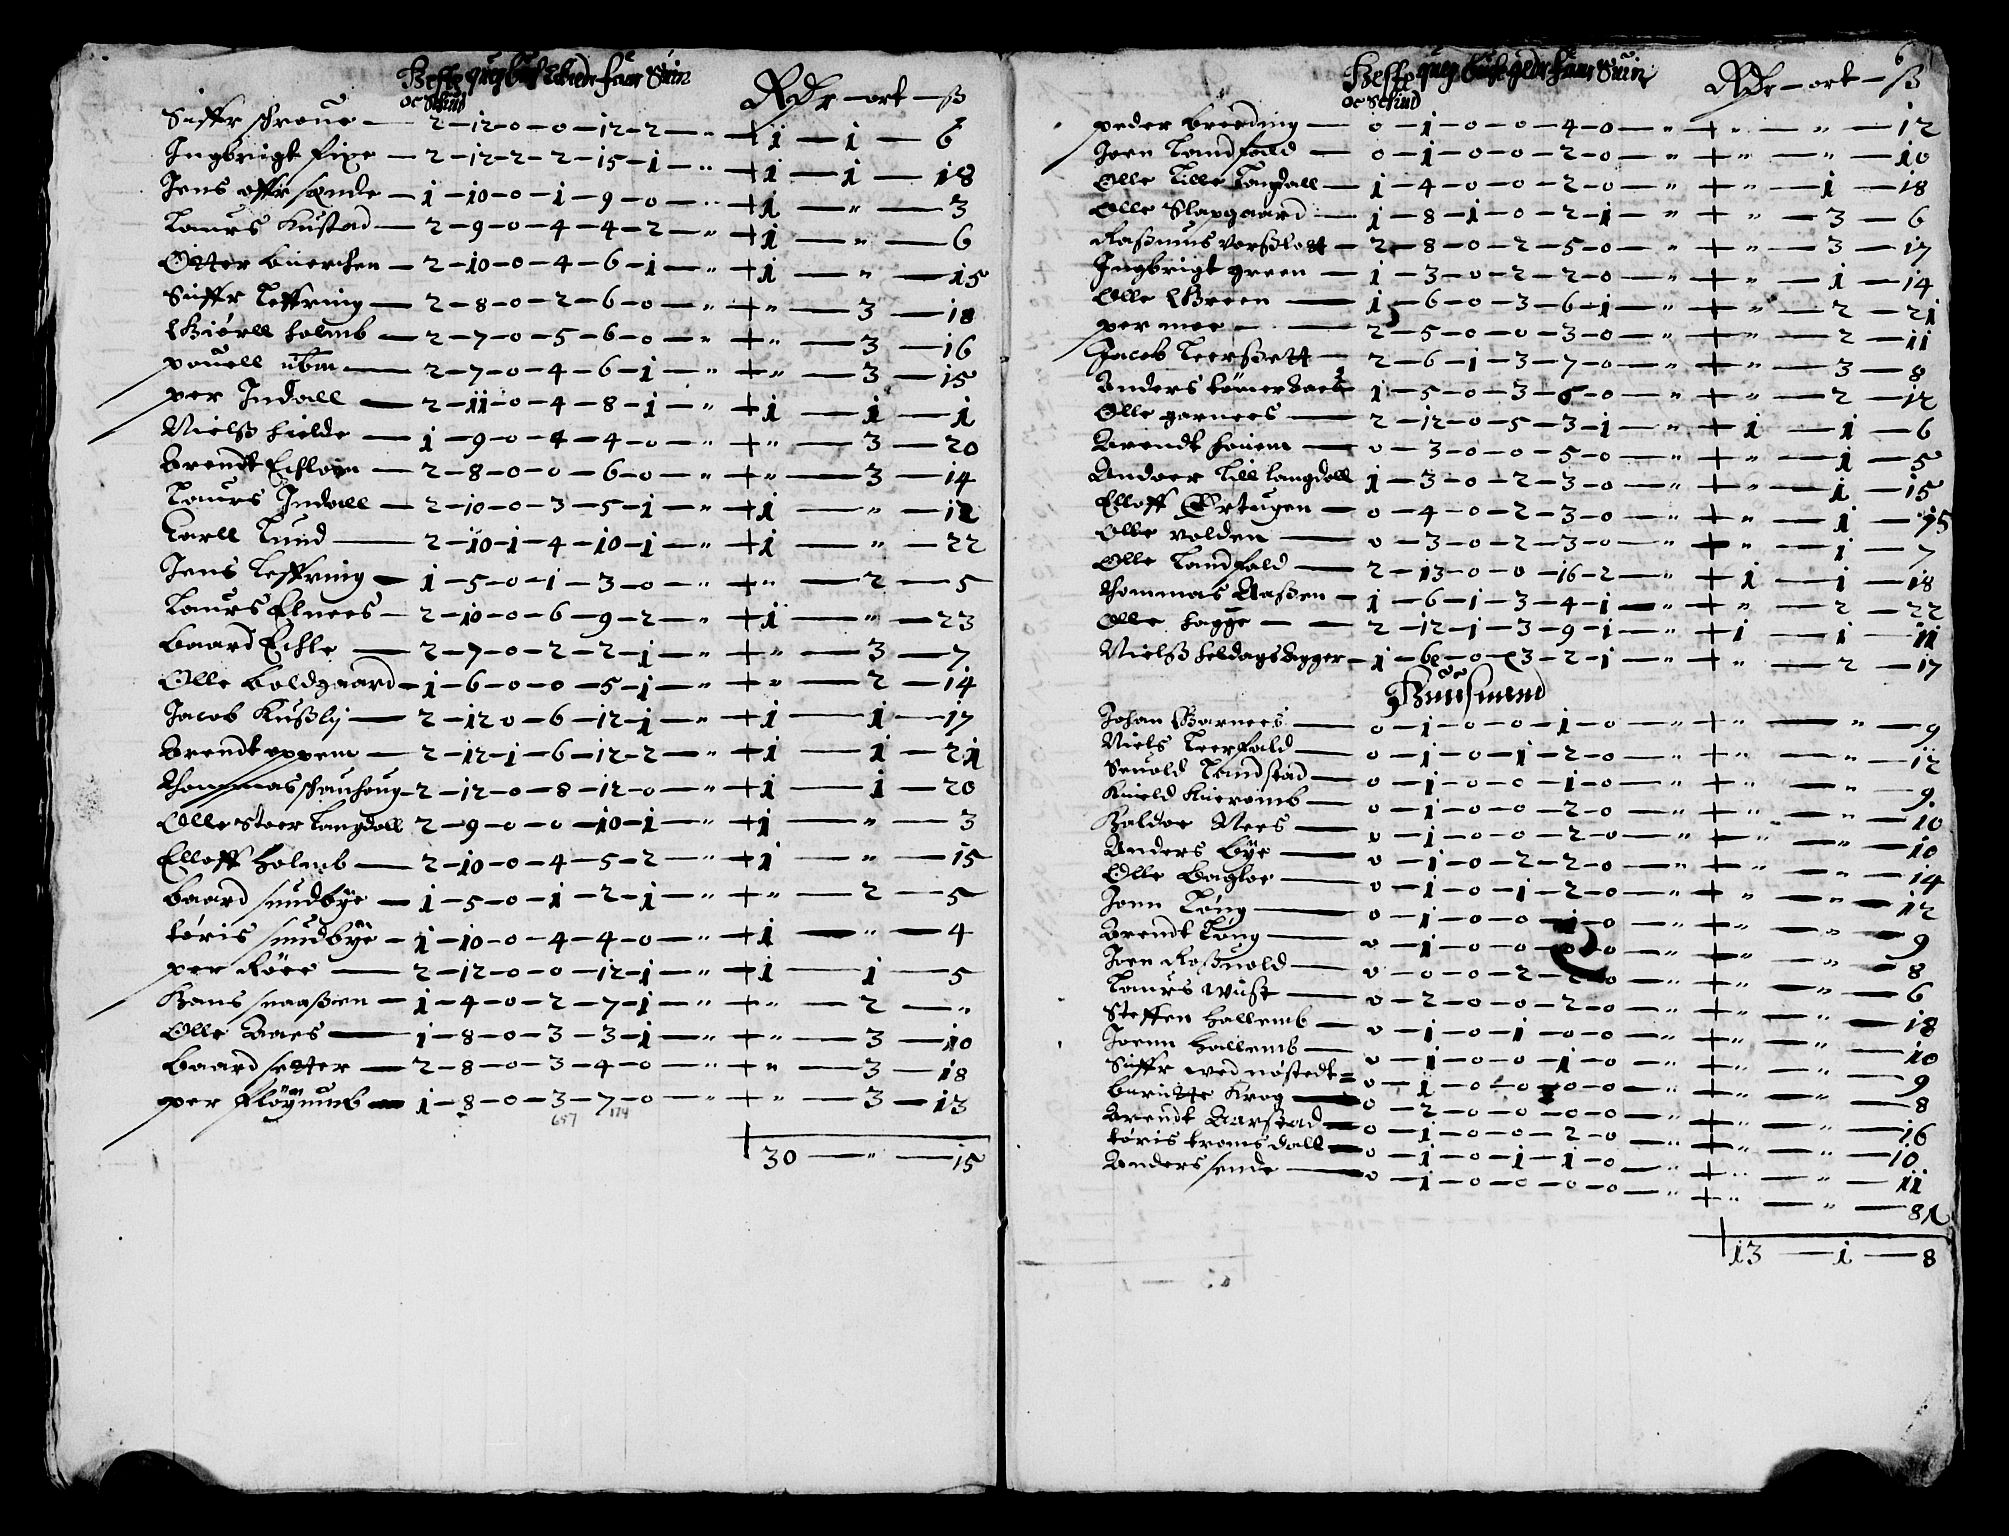 Heste queg buck gede faar Suin
oc Stud
RDr — ort — ß
Siffr — 2 — 12 — 0 — 0 — 12 — 2 — „ + 1 — 1 — 6
Ingbrigt fixe — 2 — 12 — 2 — 2 — 15 — 1 — „ + 1 — 1 — 18
Jens — 1 — 10 — 0 — 1 — 9 — 0 — „ + 1 — „ — 3
Laurs Kustad — 2 — 9 — 0 — 4 — 4 — 2 — „ + 1 — „ — 6
Otter — 2 — 10 — 0 — 4 — 6 — 1 — „ + 1 — „ — 15
Siuffr Leffring — 2 — 8 — 0 — 2 — 6 — 0 — „ + „ — 3 — 18
holmb — 2 — 7 — 0 — 5 — 6 — 0 — „ + „ — 3 — 16
pouell — 2 — 7 — 0 — 4 — 6 — 1 — „ + „ — 3 — 15
per Indall — 2 — 11 — 0 — 4 — 8 — 1 — „ + 1 — 1 — 1
Nielß hielde — 1 — 9 — 0 — 4 — 4 — 0 — „ + „ — 3 — 20
Arendt — 2 — 8 — 0 — 0 — 6 — 0 — „ + „ — 3 — 14
Laurs Indall — 2 — 10 — 0 — 3 — 5 — 1 — „ + 1 — „ — 12
Karll Lund — 2 — 10 — 1 — 4 — 10 — 1 — „ + 1 — „ — 22
Jens Leffring — 1 — 5 — 0 — 1 — 3 — 0 — „ + „ — 2 — 5
Laurs Elnees — 2 — 10 — 0 — 6 — 9 — 2 — „ + 1 — „ — 23
baard Echle — 2 — 7 — 0 — 2 — 2 — 1 — „ + „ — 3 — 7
Olle boldgaard — 1 — 6 — 0 — 0 — 5 — 1 — „ + „ — 2 — 14
Jacob Kußlj — 2 — 12 — 0 — 6 — 12 — 1 — „ + 1 — 1 — 17
Arendt oppem — 2 — 12 — 1 — 6 — 12 — 2 — „ + 1 — 1 — 21
thommas — 2 — 12 — 0 — 8 — 12 — 0 — „ + 1 — 1 — 20
Olle stoer langdall 2 — 9 — 0 — 0 — 10 — 1 — „ + 1 — „ — 3
Elloff holmb — 2 — 10 — 0 — 4 — 5 — 2 — „ + 1 — „ — 15
baard sundbÿe — 1 — 5 — 0 — 1 — 2 — 1 — „ + „ — 2 — 5
tøris sundbÿe — 1 — 10 — 0 — 4 — 4 — 0 — „ + 1 — „ — 4
per Røee — 2 — 12 — 0 — 0 — 12 — 1 — „ + 1 — 1 — 5
Hans snaaßen — 1 — 4 — 0 — 2 — 7 — 1 — „ + „ — 2 — „
Olle Aaes — 1 — 8 — 0 — 3 — 3 — 1 — „ + „ — 3 — 10
baard setter — 2 — 8 — 0 — 3 — 4 — 0 — „ + „ — 3 — 18
per fløÿumb — 1 — 8 — 0 — 3 — 7 — 0 — „ + „ — 3 — 13
657 174
30 — „ — 15
6
Heste queg buck gede faar Suin
oc Stud
RDr — ort — ß
peder breeding — 0 — 1 — 0 — 0 — 4 — 0 — „ + „ — „ — 12
Joen Landfald — 0 — 1 — 0 — 0 — 2 — 0 — „ + „ — „ — 10
Olle Lille langdall — 1 — 4 — 0 — 0 — 2 — 0 — „ + „ — 1 — 18
Olle Slapgaard — 1 — 8 — 1 — 0 — 2 — 1 — „ + „ — 3 — 6
Raßmus — 2 — 8 — 0 — 2 — 5 — 0 — „ + „ — 3 — 17
Ingbrigt green — 1 — 3 — 0 — 2 — 2 — 0 — „ + „ — 1 — 14
Olle Green — 1 — 6 — 0 — 3 — 6 — 1 — „ + „ — 2 — 21
per moe — 2 — 5 — 0 — 0 — 3 — 0 — „ + „ — 2 — 11
Jacob — 2 — 6 — 1 — 3 — 7 — 0 — „ + „ — 3 — 8
Anders — 1 — 5 — 0 — 3 — 6 — 0 — „ + „ — 2 — 12
Olle garnees — 2 — 12 — 0 — 5 — 3 — 1 — „ + 1 — 1 — 6
Arendt — 0 — 3 — 0 — 0 — 5 — 0 — „ + „ — 1 — 5
Lill langdall 1 — 3 — 0 — 2 — 3 — 0 — „ + „ — 1 — 15
Elloff Ertugen — 0 — 4 — 0 — 2 — 3 — 0 — „ + „ — 1 — 15
Olle volden — 0 — 3 — 0 — 2 — 3 — 0 — „ + „ — 1 — 7
Olle Landfald — 2 — 13 — 0 — 0 — 16 — 2 — „ + 1 — 1 — 18
thommas Aaßen — 1 — 6 — 1 — 3 — 4 — 1 — „ + „ — 2 — 22
Olle hagge — 2 — 12 — 1 — 3 — 9 — 1 — „ + 1 — 1 — 11
Nielß — 1 — 6 — 0 — 3 — 2 — 1 — „ + „ — 2 — 17
Huusmend
Johan Garnees — 0 — 1 — 0 — 0 — 1 — 0 — „ + „ — „ — 9
Niels Leerfald — 0 — 1 — 0 — 1 — 2 — 0 — „ + „ — „ — 12
Landstad — 0 — 1 — 0 — 0 — 1 — 0 — „ + „ — „ — 9
— 0 — 1 — 0 — 0 — 2 — 0 — „ + „ — „ — 10
Haldoe Nees — 0 — 1 — 0 — 0 — 2 — 0 — „ + „ — „ — 10
Anders bÿe — 0 — 1 — 0 — 2 — 2 — 0 — „ + „ — „ — 14
Olle — 0 — 1 — 0 — 1 — 2 — 0 — „ + „ — „ — 12
Jonn Lóng — 0 — 1 — 0 — 0 — 1 — 0 — „ + „ — „ — 9
Arendt Lóng — 0 — 1 — 0 — 0 — 0 — 0 — „ + „ — „ — 8
Joen Roßuold — 0 — 0 — 0 — 2 — 2 — 0 — „ + „ — „ — 6
Laurs — 0 — 2 — 0 — 0 — 2 — 0 — „ + „ — „ — 18
Steffen Hallemb — 0 — 1 — 0 — 1 — 0 — 0 — „ + „ — „ — 10
Joenn Hallemb — 0 — 1 — 0 — 0 — 1 — 0 — „ + „ — „ — 9
Siuffr wed nøstedt — 0 — 1 — 0 — 0 — 0 — 0 — „ + „ — „ — 8
Krog — 0 — 2 — 0 — 0 — 0 — 0 — „ + „ — „ — 16
Arendt Aarstad — 0 — 1 — 0 — 0 — 2 — 0 — „ + „ — „ — 10
tøris tromsdall — 0 — 1 — 0 — 1 — 1 — 0 — „ + „ — „ — 11
Anders sende — 0 — 1 — 0 — 0 — 0 — 0 — „ + „ — „ — 8
13 — 1 — 8